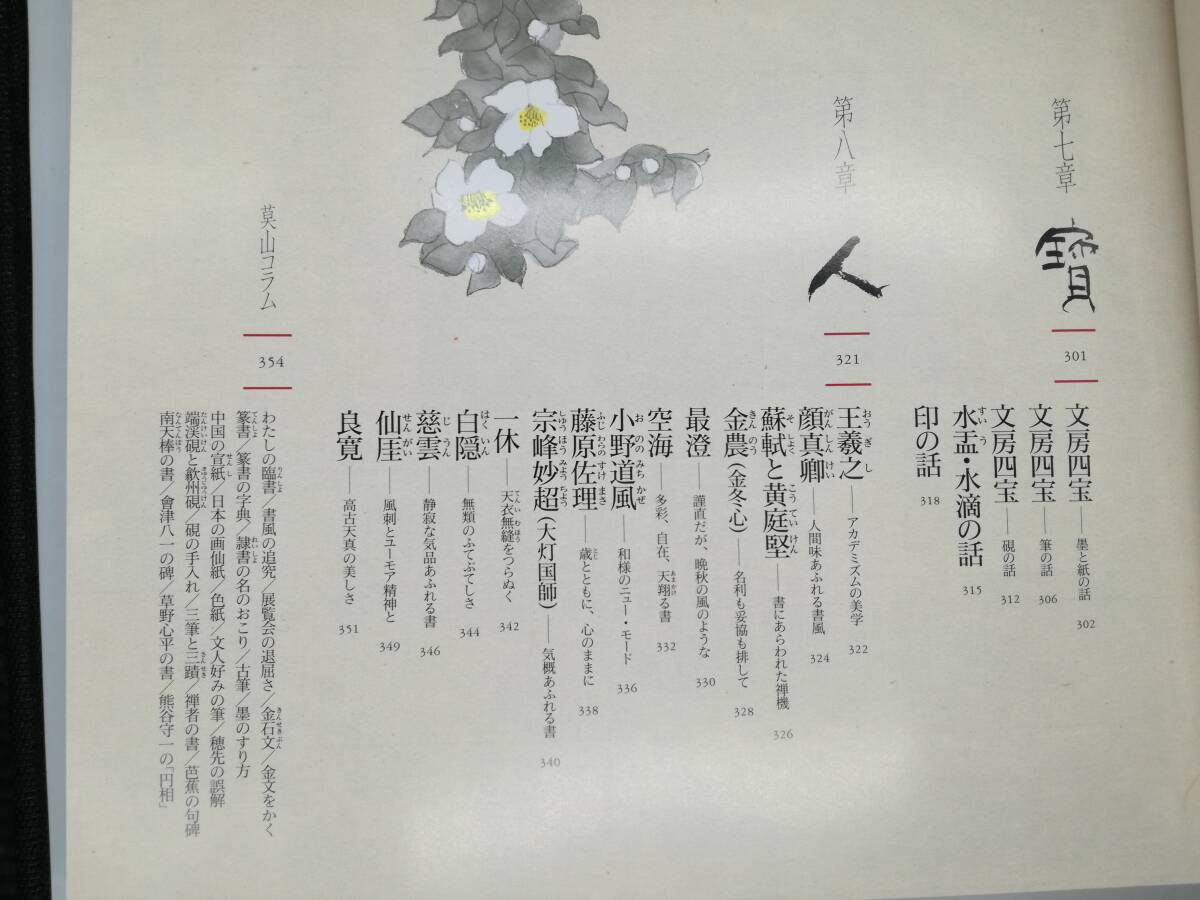 第七章
寶
301
文房四宝——墨と紙の話 302
文房四宝——筆の話 306
文房四宝——硯の話 312
水盂・水滴の話 315
印の話 318
第八章
人
321
王羲之——アカデミズムの美学 322
顔真卿——人間味あふれる書風 324
蘇軾と黄庭堅——書にあらわれた禅機 326
金農(金冬心)——名利も妥協も排して 328
最澄——謹直だが、晩秋の風のような 330
空海——多彩、自在、天翔る書 332
小野道風——和様のニュー・モード 336
藤原佐理——歳とともに、心のままに 338
宗峰妙超(大灯国師)——気概あふれる書 340
一休——天衣無縫をつらぬく 342
白隠——無類のふてぶてしさ 344
慈雲——静寂な気品あふれる書 346
仙厓——風刺とユーモア精神と 349
良寛——高古天真の美しさ 351
莫山コラム
354
わたしの臨書/書風の追究/展覧会の退屈さ/金石文/金文をかく
篆書/篆書の字典/隷書の名のおこり/古筆/墨のすり方
中国の宣紙/日本の画仙紙/色紙/文人好みの筆/穂先の誤解
端渓硯と歙州硯/硯の手入れ/三筆と三蹟/禅者の書/芭蕉の句碑
南天棒の書/會津八一の碑/草野心平の書/熊谷守一の「円相」